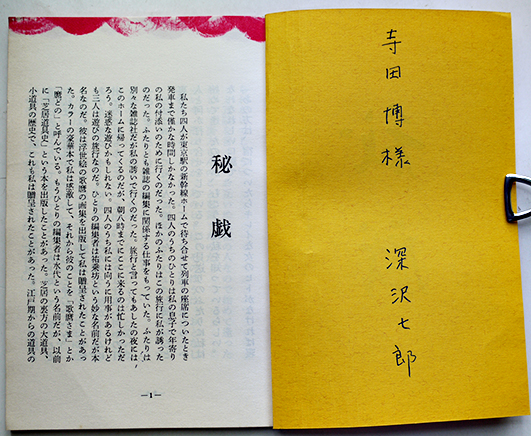 寺田博様
深沢七郎
秘戯
私たち四人が東京駅の新幹線ホームで待ち合せて列車の座席についたとき
発車まで僅かな時間しかなかった。四人のうちのひとりは私の息子で年寄り
の私の付添いのために行くのだった。ほかのふたりはこの旅行に私が誘った
のだった。ふたりとも雑誌の編集に関係する仕事をもっていた。ふたりは
別々な雑誌社だが私の誘いで行くのだった。旅行と言ってもあしたの夜には
このホームに帰ってくるのだが、朝八時までにここに来るのは忙しかっただ
ろう。迷惑な遊びかもしれない。四人のうち私には向うに用事があるけれど
も三人は遊びの旅行なのだ。ひとりの編集者は祐乗坊という妙な名前だが本
名なのだ。彼は浮世絵の歌麿の画集を出版して私は贈呈されたことがあっ
た。カラーの豪華本で私は感激して、それから彼のことを「歌麿さま」とか
「麿どの」と呼んでいる。もうひとりの編集者は水代という名前だが、以前
に「芝居道具史」という本を出版したことがあった。芝居の裏方の大道具、
小道具の歴史で、これも私は贈呈されたことがあった。江戸期からの道具の
—1—